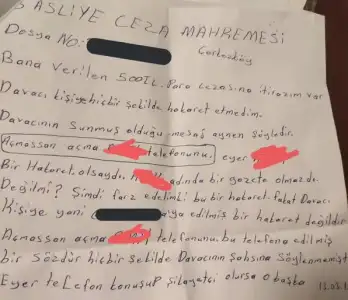 ASLİYE CEZA MAHKEMESİ
Dosya NO:
Çerkezköy
Bana verilen 500TL. Para cezasına itirazım var
Davacı kişiye hiçbir şekilde hakaret etmedim.
Davacının sunmuş olduğu mesaj aynen şöyledir.
Açmassan açma telefonunu, eyer
Bir Hakaret olsaydı, adında bir gazete olmazdı.
Değilmi? Şimdi farz edelimki bu bir hakaret fakat Davacı
Kişiye yani aya edilmiş bir hakaret değildir
Açmassan açma telefonunu, bu telefona edilmiş
bir sözdür hiçbir şekilde Davacının Şahsına Söylenmemişt
Eyer telefon konuşup şikayetçi olursa o başka